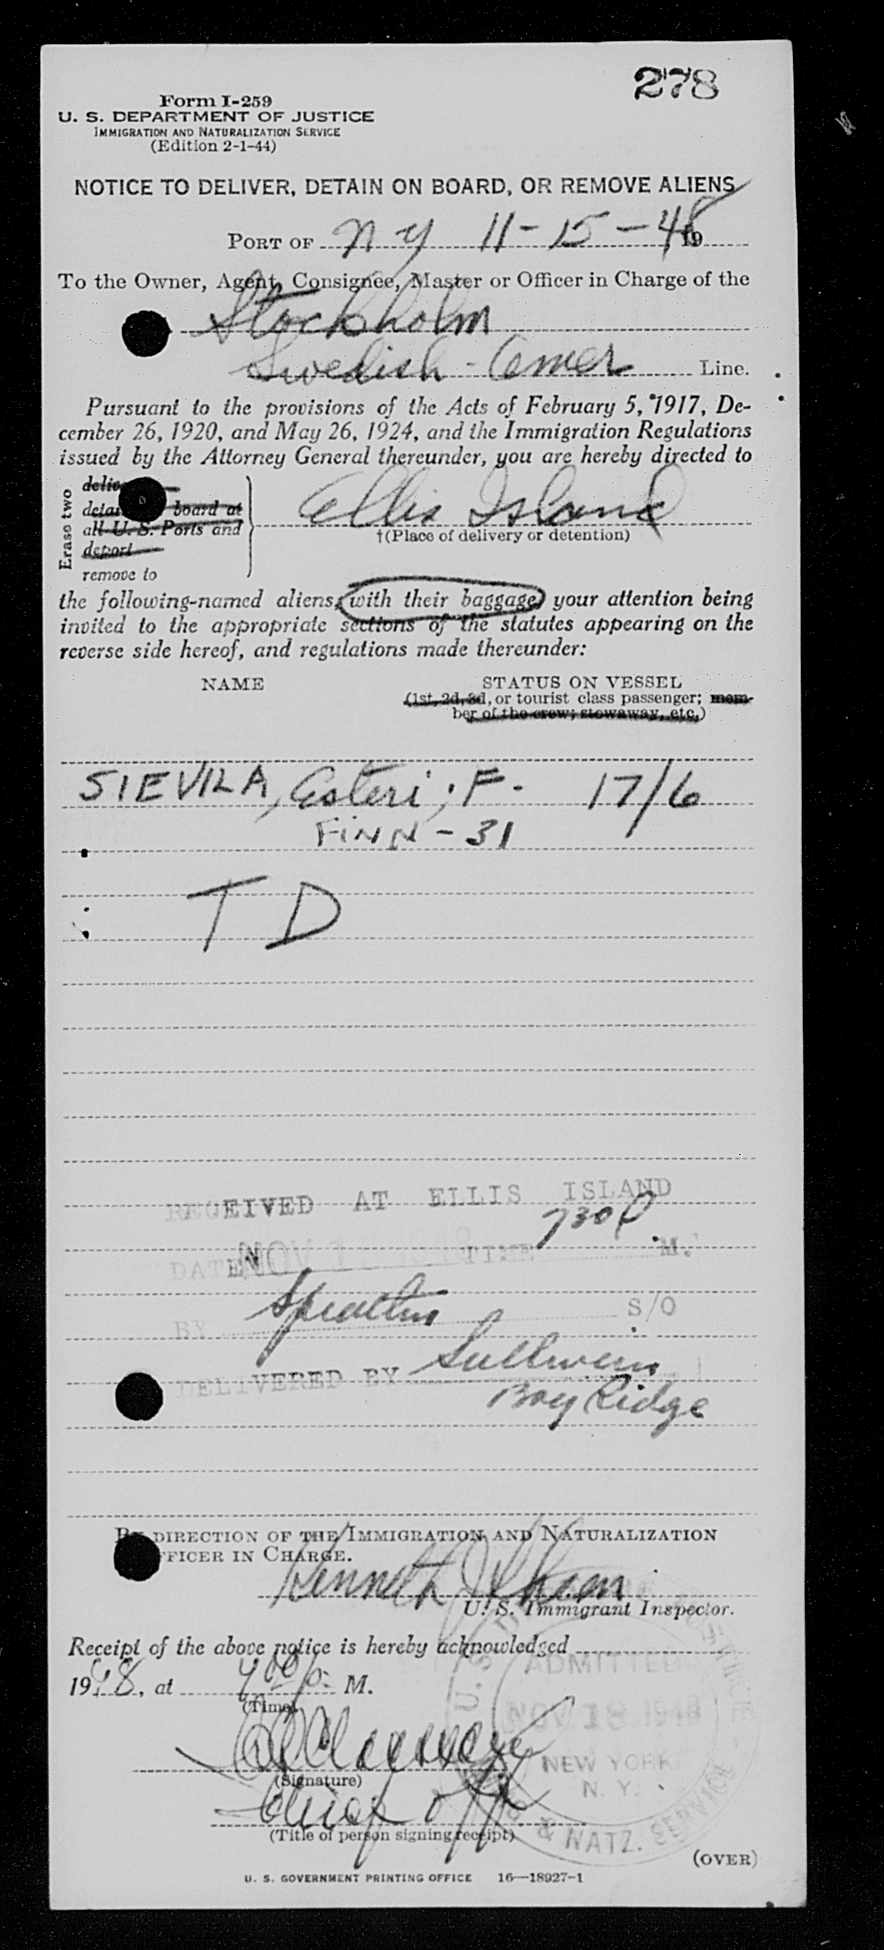 278
Form I-259
U. S. DEPARTMENT OF JUSTICE
IMMIGRATION AND NATURALIZATION SERVICE
(Edition 2-1-44)
NOTICE TO DELIVER, DETAIN ON BOARD, OR REMOVE ALIENS
PORT OF N Y 11-15-48 19
To the Owner, Agent, Consignee, Master or Officer in Charge of the
Stockholm
Swedish-Amer Line.
Pursuant to the provisions of the Acts of February 5, 1917, De-
cember 26, 1920, and May 26, 1924, and the Immigration Regulations
issued by the Attorney General thereunder, you are hereby directed to
Erase two
board at
all U. S. Ports and
deport
remove to
Ellis Island
†(Place of delivery or detention)
the following-named aliens, with their baggage, your attention being
invited to the appropriate sections of the statutes appearing on the
reverse side hereof, and regulations made thereunder:
NAME STATUS ON VESSEL
(1st, 2d, 3d, or tourist class passenger; mem-
ber of the crew; stowaway, etc.)
SIEVILA, Esteri, F. 17/6
FINN-31
T D
RECEIVED AT ELLIS ISLAND
DATE NOV TIME 730 P M.
BY S/O
DELIVERED BY
Bay Ridge
BY DIRECTION OF THE IMMIGRATION AND NATURALIZATION
OFFICER IN CHARGE.
Kenneth J
U. S. Immigrant Inspector.
Receipt of the above notice is hereby acknowledged
1948, at 4 00 p. M.
(Time)
(Signature)
Chief Off
(Title of person signing receipt)
U. S. DEPT. OF JUSTICE
ADMITTED
NOV 18 1948
NEW YORK
N. Y.
& NATZ. SERVICE
(OVER)
U. S. GOVERNMENT PRINTING OFFICE 16—18927-1